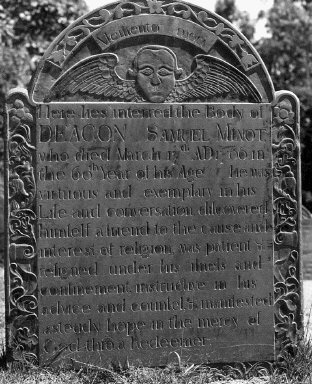 Memento mori
Here lies interred the Body of
DEACON SAMUEL MINOT
who died March 17th AD 1766 in
the 60th Year of his Age he was
virtuous and exemplary in his
Life and conversation discovered
himself a friend to the cause and
interest of religion was patient &
resigned under his illness and
confinement instructive in his
advice and counsels manifested
a steady hope in the mercy of
God thro a Redeemer